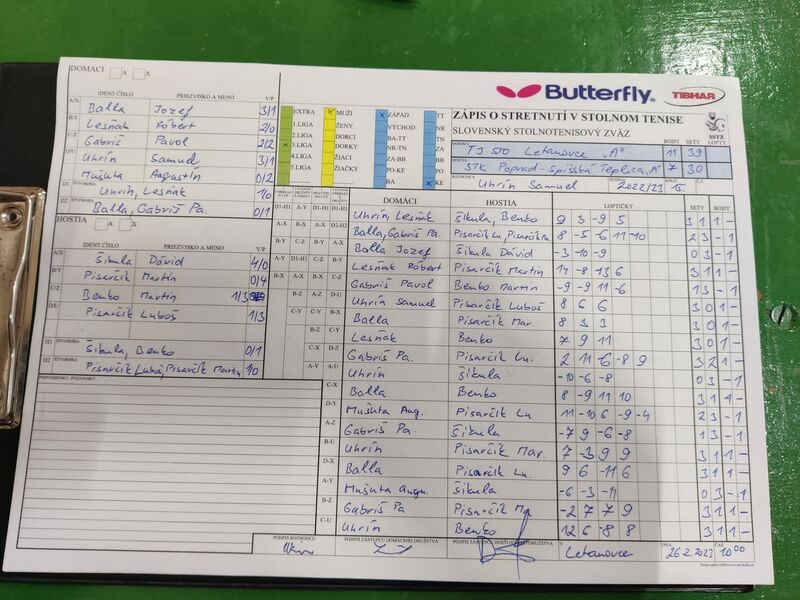 DOMACI A X
IDENT ČÍSLO PRIEZVISKO A MENO V/P
A/X Balla Jozef 3/1
B/Y Lesňák Róbert 2/0
C/Z Gabriš Pavol 2/2
D/U Uhrín Samuel 3/1
Mušuta Augustín 0/2
D1 ŠTVORHRA Uhrín, Lesňák 1/0
D2 ŠTVORHRA Balla, Gabriš Pa. 0/1
HOSTIA A X
IDENT ČÍSLO PRIEZVISKO A MENO V/P
A/X Šikula Dávid 4/0
B/Y Pisarčík Martin 0/4
C/Z Benko Martin 1/3
D/U Pisarčík Luboš 1/3
H1 ŠTVORHRA Šikula, Benko 0/1
H2 ŠTVORHRA Pisarčík Luboš, Pisarčík Martin 1 0
PRIPOMIENKY, POZNÁMKY
EXTRA
1.LIGA
2.LIGA
3.LIGA
4.LIGA
5.LIGA
x MUŽI
ŽENY
DORCI
DORKY
ŽIACI
ŽIAČKY
x ZÁPAD
VÝCHOD
BA-TT
NR-TN
ZA-BB
PO-KE
BA
TT
TN
NR
ZA
BB
PO
x KE
Butterfly TIBHAR
ZÁPIS O STRETNUTÍ V STOLNOM TENISE
SLOVENSKÝ STOLNOTENISOVÝ ZVÄZ
SSTZ
BODY SETY LOPTY
DOMÁCI TJ STO Letanovce "A" 11 39
HOSTIA STK Poprad-Spišská Teplica "A" 7 30
ROZHODCA Uhrín Samuel 2022/23 15.
DOMÁCI HOSTIA LOPTIČKY SETY BODY
Uhrín, Lesňák Šikula, Benko 9 3 -9 5 3 1 1 -
Balla, Gabriš Pa. 8 -5 -6 11 -10 2 3 - 1
Balla Jozef Šikula Dávid -3 -10 -9 0 3 - 1
Lesňák Róbert Pisarčík Martin 14 -8 13 6 3 1 1 -
Gabriš Pavol Benko Martin -9 -9 11 -6 1 3 - 1
Uhrín Samuel Pisarčík Luboš 8 6 6 3 0 1 -
Balla Pisarčík Mar. 8 3 3 3 0 1 -
Lesňák Benko 7 9 11 3 0 1 -
Gabriš Pa. Pisarčík Lu. 2 11 -6 -8 9 3 2 1 -
Uhrín Šikula -10 -6 -8 0 3 - 1
Balla Benko 8 -9 11 10 3 1 1 -
Mušuta Aug. Pisarčík Lu 11 -10 6 -9 -4 2 3 - 1
Gabriš Pa. Šikula -7 9 -6 -8 1 3 - 1
Uhrín Pisarčík Mar. 7 -3 9 9 3 1 1 -
Balla Pisarčík Lu. 9 6 -11 6 3 1 1 -
Mušuta Augu. Šikula -6 -3 -11 0 3 - 1
Gabriš Pa Pisarčík Ma -2 7 7 9 3 1 1 -
Uhrín Benko 12 6 -8 8 3 1 1 -
PODPIS ROZHODCU PODPIS ZÁSTUPCU DOMÁCEHO DRUŽSTVA V Letanovce DŇA 26.2.2023 ČAS 10:00